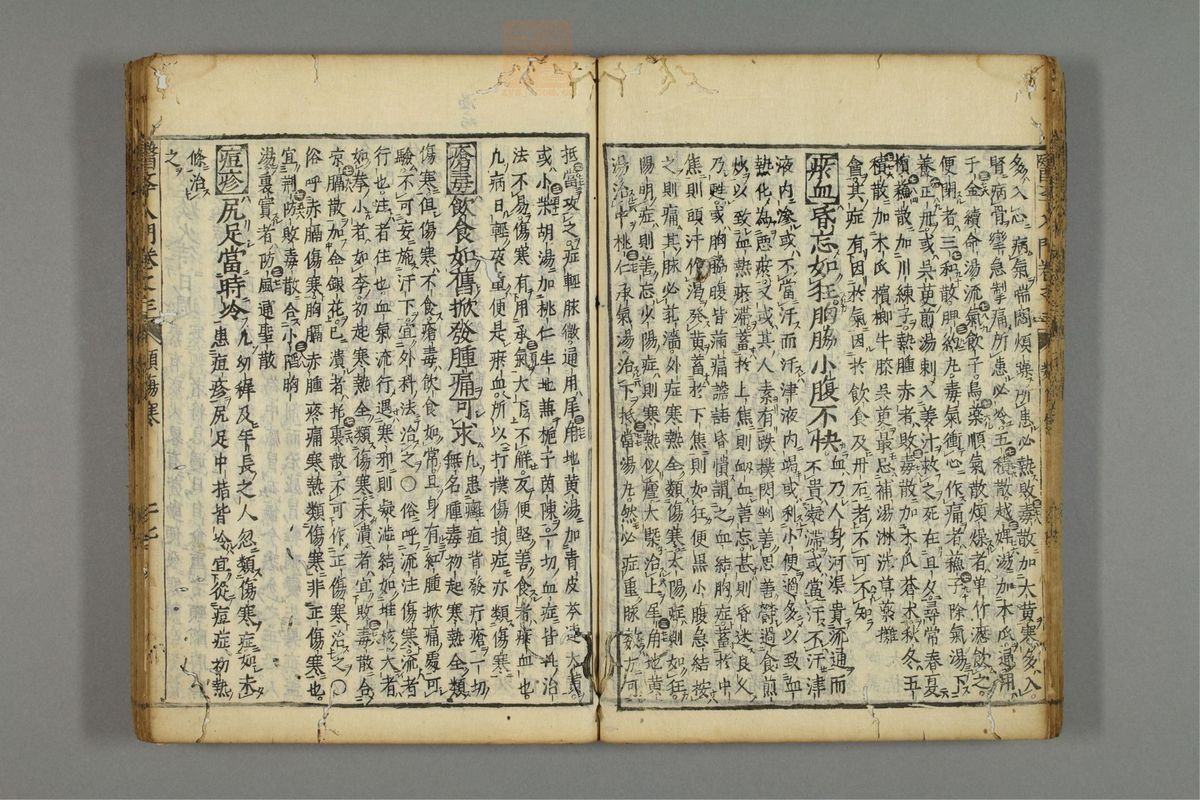 多入心病氣喘悶煩躁所患必熱敗毒散加大黃寒多入
腎病骨攣急掣痛所患必冷五積散越婢湯加木瓜通用
千金續命湯流氣飲子烏藥順氣散煩燥者單竹瀝飲之
便閉者三和散脚氣衝心作痛者蘓子降氣湯下
養正丹或吳茱萸湯刺入姜汁救之死在旦夕尋常春夏
檳榔散加川練子熱腫赤者敗毒散加木瓜蒼朮秋冬五
積散加木瓜檳榔牛膝吳茱萸忌補湯淋洗草藥攤
會其症有因於氣因於飲食及丹石者不可不知
瘀血寄忘如狂胸脇小腹不快血乃人身河渠貴流通而不貴凝滯或當汗不汗津
液内凝或不當汗而汗津液内竭或利小便過多以致血
熱化為惡瘀又或其人素有跌撲閃㑃善思善鬱過食煎
炒以致血熱瘀滯蓄於上焦則衂血善忘甚則昏迷良久
乃甦或胸脇腹皆滿痛譫語昏憒謂之血結胸症蓄於中
焦則頭汗作渴發黃蓄於下焦則如狂便黑小腹急結按
之則痛其脉必芤濇外症寒熱全類傷寒太陽症則如狂
陽明症則善忘少陽症則寒熱似瘧大槩治上犀角地黃
湯治中桃仁承氣湯治下抵當湯丸然必症重脉
抵當攻之症輕脉微通用犀角地黃湯加青皮大黃
或小柴胡湯加桃仁生地蕪梔子茵陳一切血症皆此治
法不易傷寒有用承氣大下不解反便堅善食者瘀血也
凡病日輕夜重便是瘀血所以打撲傷損症亦類傷寒
瘡毒飲食如舊掀發腫痛可求凡患癰疽背發疔瘡一切無名腫毒初起寒熱全類
傷寒但傷寒不食瘡毒飲食如常且身有紅腫掀痛處可
驗不可妄施汗下宜外科法治之〇俗呼流注傷寒流者
行也注者住也血氣流行遇寒邪則凝滯結如堆核大者
如拳小者如李初起寒熱全類傷寒未潰者宜敗毒散合
京膈散加金銀花已潰者托裏散不可作正傷寒治之〇
俗呼赤膈傷寒胸膈赤腫疼痛寒熱類傷寒非正傷寒也
宜荆防敗毒散合小陷胸
湯裏實者防風通聖散
痘疹尻足當時冷凡幼穉及年長之人忽類傷寒症如未患痘疹尻足中指皆冷宜從痘症初熱
條治
之
醫學入門卷之
類傷寒